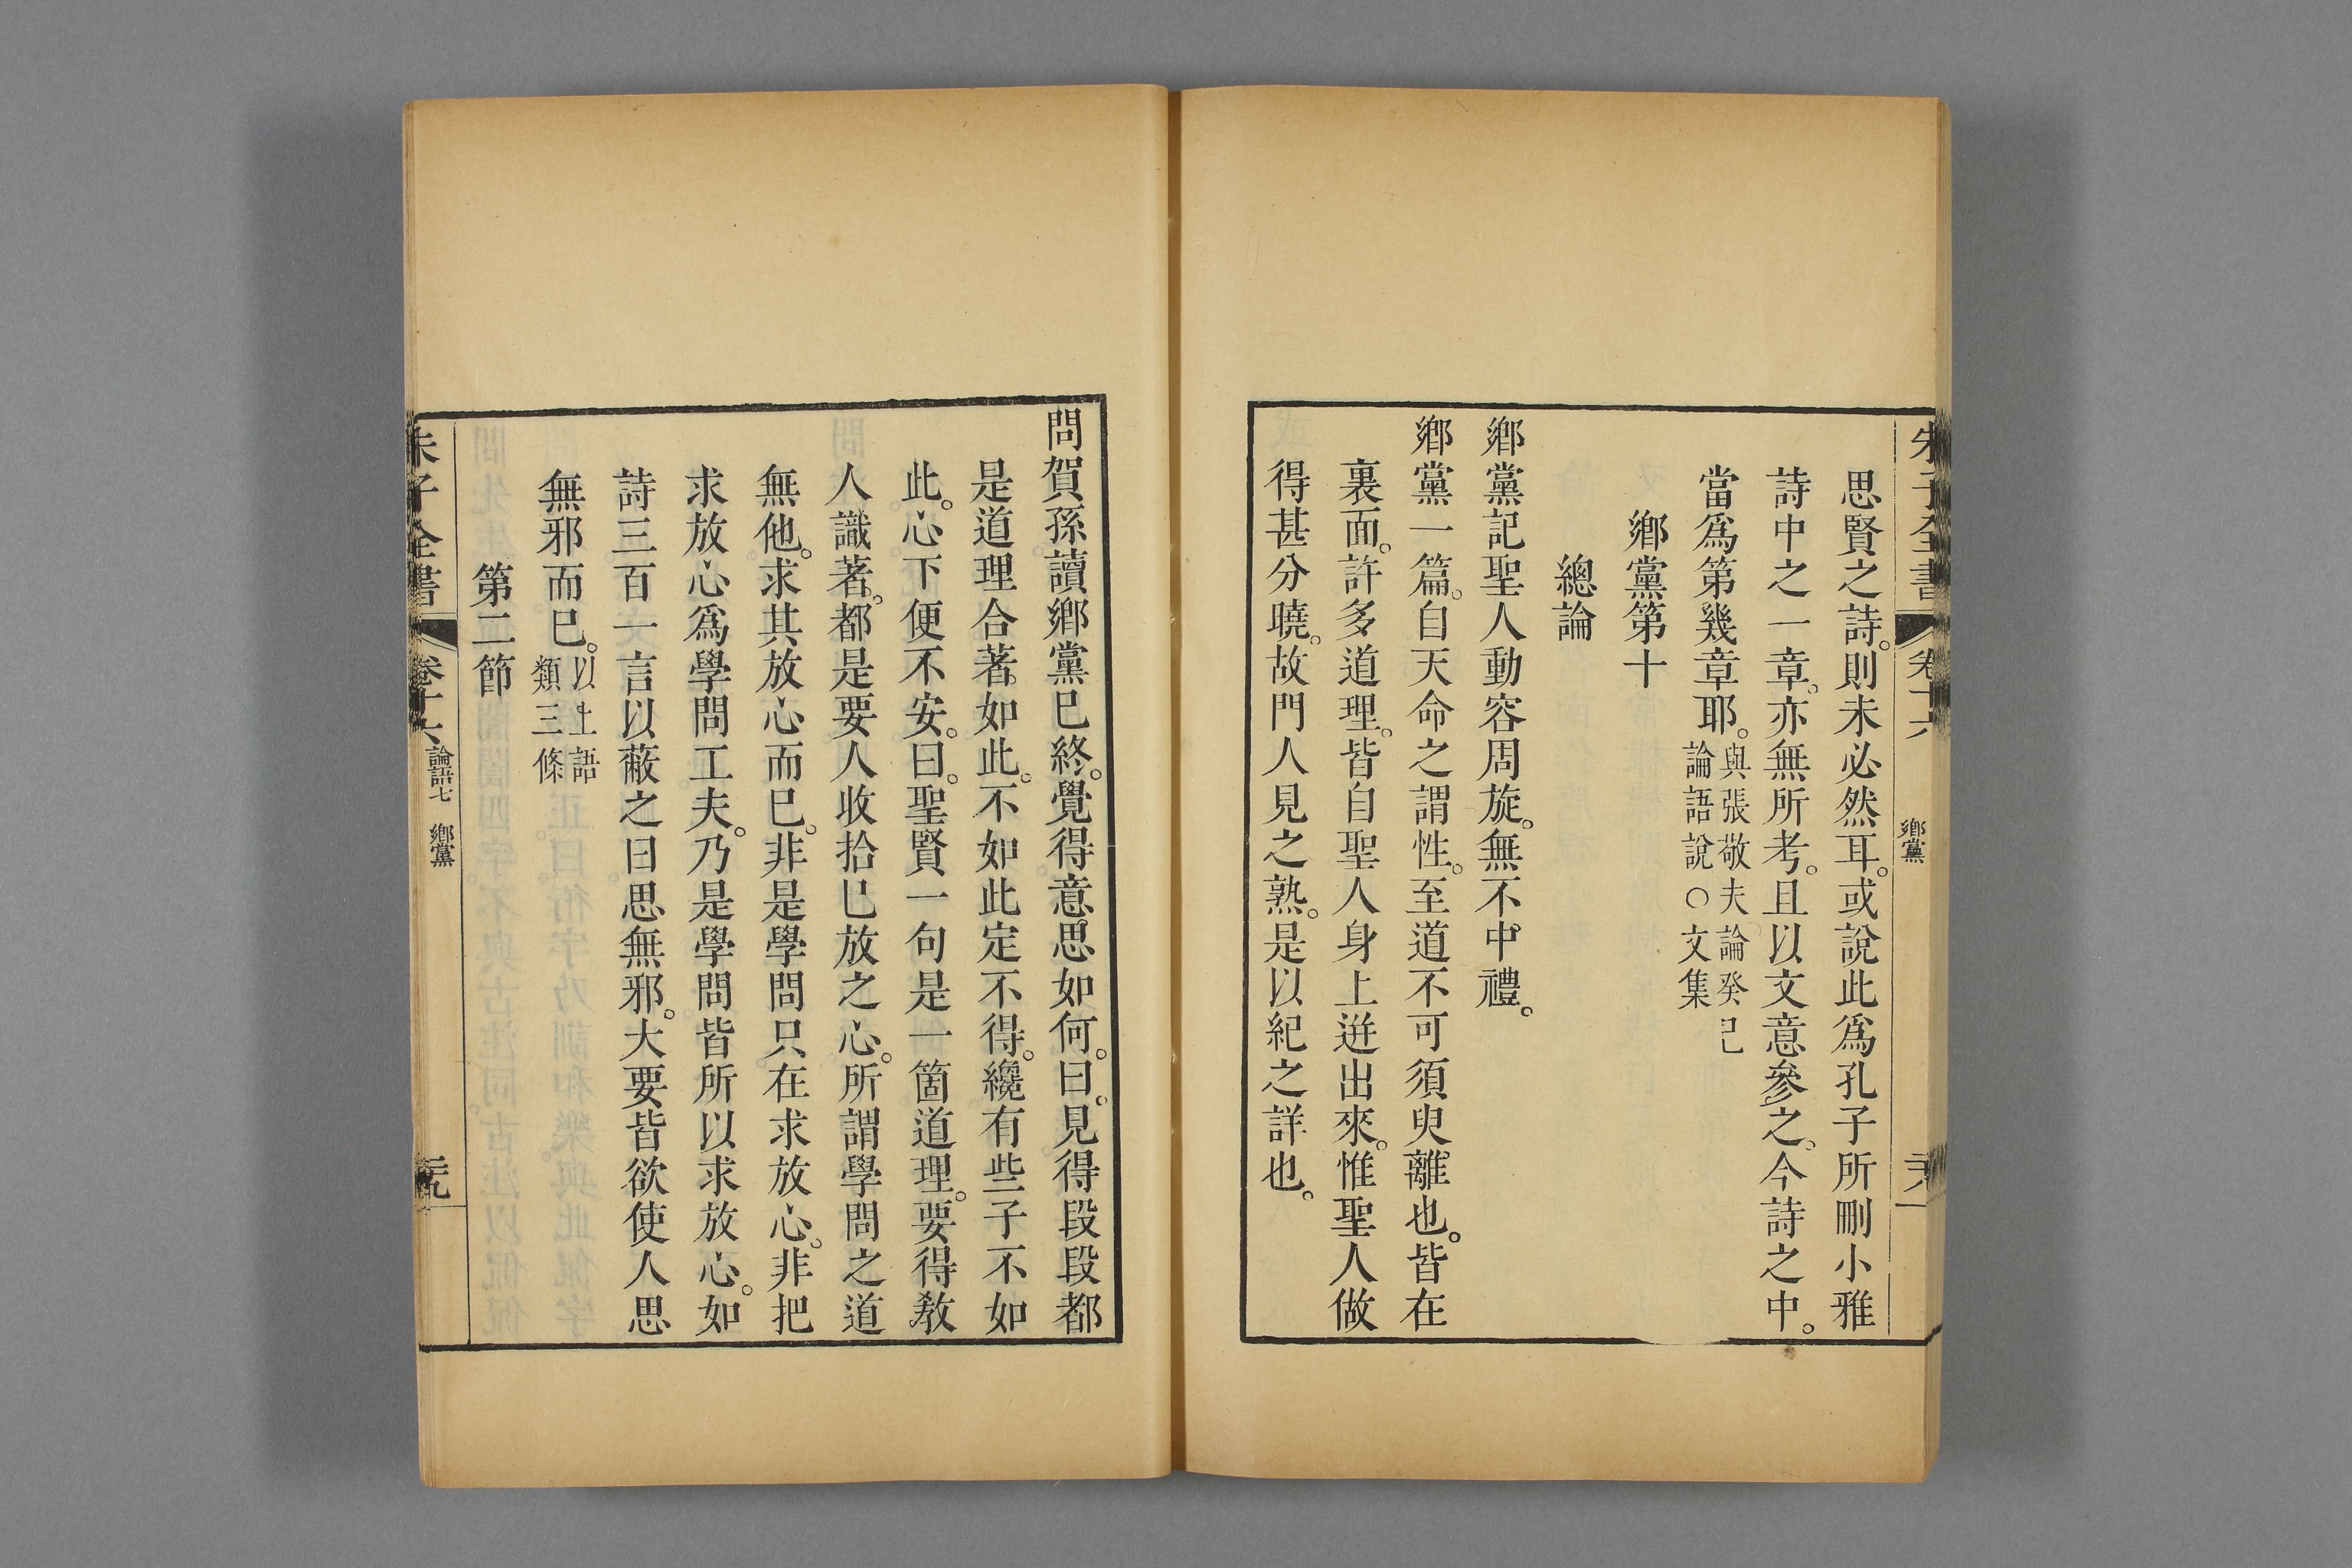 朱子全書 卷十六 鄉黨 二十八
思賢之詩。則未必然耳。或說此爲孔子所刪小雅
詩中之一章。亦無所考。且以文意參之。今詩之中。
當爲第幾章耶。與張敬夫論癸巳
論語說○文集
鄉黨第十
總論
鄉黨記聖人動容周旋。無不中禮。
鄉黨一篇。自天命之謂性。至道不可須臾離也。皆在
裏面。許多道理。皆自聖人身上迸出來。惟聖人做
得甚分曉。故門人見之熟。是以紀之詳也。
問賀孫讀鄉黨已終。覺得意思如何。曰。見得段段都
是道理合著。如此。不如此定不得。纔有些子不如
此。心下便不安。曰。聖賢一句是一箇道理。要得敎
人識著。都是要人收拾已放之心。所謂學問之道
無他。求其放心而已。非是學問只在求放心。非把
求放心爲學問工夫。乃是學問皆所以求放心。如
詩三百一言以蔽之曰思無邪。大要皆欲使人思
無邪而已。以上語
類三條
第二節
朱子全書 卷十六 論語七 鄉黨 二十九